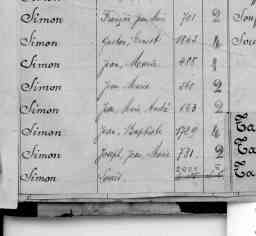 Simon François Jean Marie 701 2
Simon Gaston, Ernest 1862 4
Simon Jean, Marie 418 1
Simon Jean Marie 2
Simon Jean, Marie, André 163 2
Simon Jean, Baptiste 1729 4
Simon Joseph, Jean, Marie 731 2
Simon Louis 5